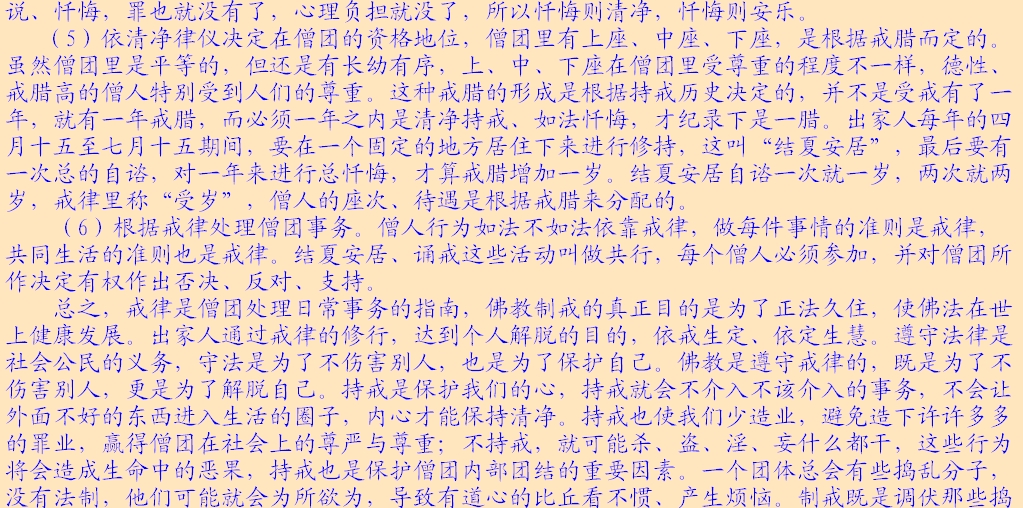 说、忏悔，罪也就没有了，心理负担就没了，所以忏悔则清净，忏悔则安乐。
（5）依清净律仪决定在僧团的资格地位，僧团里有上座、中座、下座，是根据戒腊而定的。
虽然僧团里是平等的，但还是有长幼有序，上、中、下座在僧团里受尊重的程度不一样，德性、
戒腊高的僧人特别受到人们的尊重。这种戒腊的形成是根据持戒历史决定的，并不是受戒有了一
年，就有一年戒腊，而必须一年之内是清净持戒、如法忏悔，才纪录下是一腊。出家人每年的四
月十五至七月十五期间，要在一个固定的地方居住下来进行修持，这叫“结夏安居”，最后要有
一次总的自谘，对一年来进行总忏悔，才算戒腊增加一岁。结夏安居自谘一次就一岁，两次就两
岁，戒律里称“受岁”，僧人的座次、待遇是根据戒腊来分配的。
（6）根据戒律处理僧团事务。僧人行为如法不如法依靠戒律，做每件事情的准则是戒律，
共同生活的准则也是戒律。结夏安居、诵戒这些活动叫做共行，每个僧人必须参加，并对僧团所
作决定有权作出否决、反对、支持。
总之，戒律是僧团处理日常事务的指南，佛教制戒的真正目的是为了正法久住，使佛法在世
上健康发展。出家人通过戒律的修行，达到个人解脱的目的，依戒生定、依定生慧。遵守法律是
社会公民的义务，守法是为了不伤害别人，也是为了保护自己。佛教是遵守戒律的，既是为了不
伤害别人，更是为了解脱自己。持戒是保护我们的心，持戒就会不介入不该介入的事务，不会让
外面不好的东西进入生活的圈子，内心才能保持清净。持戒也使我们少造业，避免造下许许多多
的罪业，赢得僧团在社会上的尊严与尊重；不持戒，就可能杀、盗、淫、妄什么都干，这些行为
将会造成生命中的恶果，持戒也是保护僧团内部团结的重要因素。一个团体总会有些捣乱分子，
没有法制，他们可能就会为所欲为，导致有道心的比丘看不惯、产生烦恼。制戒既是调伏那些捣